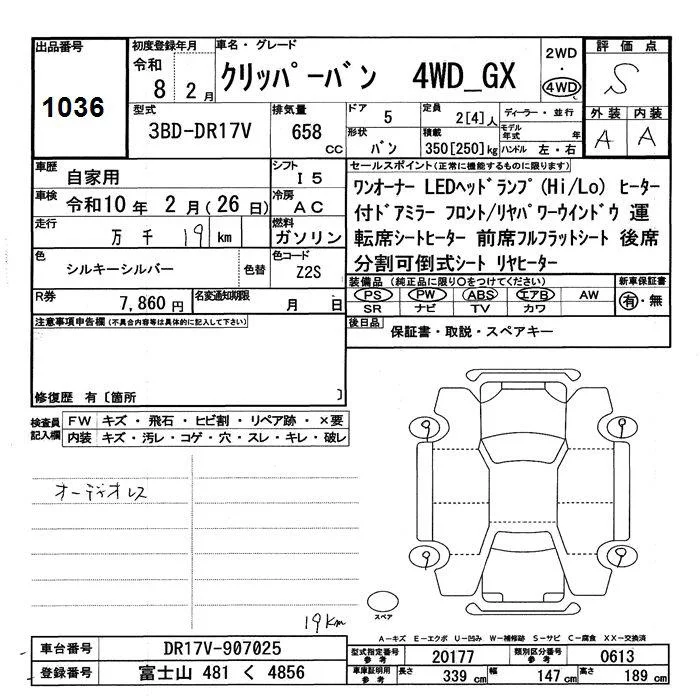 出品番号
1036
初度登録年月
令和
8 2月
車名・グレード
クリッパーバン 4WD_GX
2WD
・
4WD
評価点
S
外装 内装
A A
型式
3BD-DR17V
排気量
658 cc
ドア
5
定員
2[4]人
形状
バン
積載
350[250]kg
ディーラー・並行
モデル年式 年
ハンドル 左・右
車歴
自家用
シフト
I5
車検
令和10年 2月(26日)
冷房
AC
走行
万 千 19 km
燃料
ガソリン
色
シルキーシルバー
色替
色コード
Z2S
R券
7,860円
名変通知期限
月 日
セールスポイント(正常に機能するものに限ります)
ワンオーナー LEDヘッドランプ(Hi/Lo) ヒーター
付ドアミラー フロント/リヤパワーウインドウ 運
転席シートヒーター 前席フルフラットシート 後席
分割可倒式シート リヤヒーター
装備品(純正品に限り〇をつけてください)
PS PW ABS エアB AW
SR ナビ TV カワ
新車保証書
有・無
後日品
保証書・取説・スペアキー
注意事項申告欄(不具合内容等は具体的に記入して下さい)
修復歴 有〔箇所 〕
検査員
記入欄
FW キズ・飛石・ヒビ割・リペア跡・×要
内装 キズ・汚レ・コゲ・穴・スレ・キレ・破レ
オーディオレス
19Km
9 9
9 9
スペア
A-キズ E-エクボ U-凹み W-補修跡 S-サビ C-腐食 XX-交換済
車台番号
DR17V-907025
登録番号
富士山 481 く 4856
型式指定番号
参考
20177
類別区分番号
参考
0613
車庫証明用
参考
長さ 339cm 幅 147cm 高さ 189cm